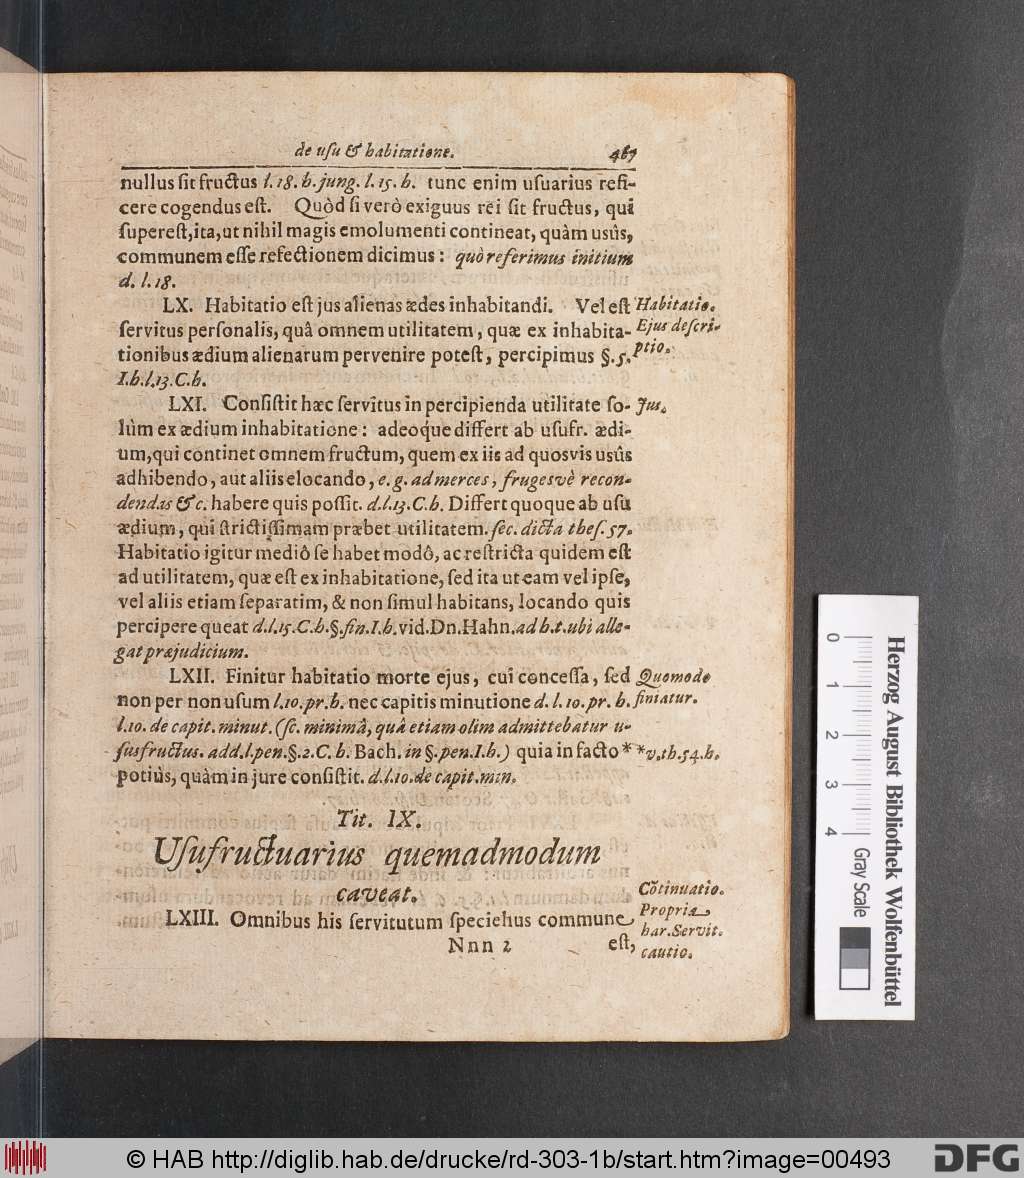 de usu & habitatione. 467
nullus sit fructus l. 18. h. jung. l. 15. h. tunc enim usuarius refi-
cere cogendus est. Quòd si verò exiguus rei sit fructus, qui
superest, ita, ut nihil magis emolumenti contineat, quàm usûs,
communem esse refectionem dicimus: quò referimus initium
d. l. 18.
LX. Habitatio est jus alienas ædes inhabitandi. Vel est
Habitatio.
servitus personalis, quâ omnem utilitatem, quæ ex inhabita-
Ejus descri-
tionibus ædium alienarum pervenire potest, percipimus §. 5.
ptio.
I. h. l. 13. C. h.
LXI. Consistit hæc servitus in percipienda utilitate so-
Jus.
lùm ex ædium inhabitatione: adeoque differt ab usufr. ædi-
um, qui continet omnem fructum, quem ex iis ad quosvis usûs
adhibendo, aut aliis elocando, e. g. ad merces, frugesvè recon-
dendas &c. habere quis possit. d. l. 13. C. h. Differt quoque ab usu
ædium, qui strictissimam præbet utilitatem. sec. dicta thes. 57.
Habitatio igitur mediô se habet modô, ac restricta quidem est
ad utilitatem, quæ est ex inhabitatione, sed ita ut eam vel ipse,
vel aliis etiam separatim, & non simul habitans, locando quis
percipere queat d. l. 15. C. h. §. fin. I. h. vid. Dn. Hahn. ad h. t. ubi alle-
gat præjudicium.
LXII. Finitur habitatio morte ejus, cui concessa, sed
Quomodo
non per non usum l. 10. pr. h. nec capitis minutione d. l. 10. pr. h.
finiatur.
l. 10. de capit. minut. (sc. minimâ, quâ etiam olim admittebatur u-
susfructus. add. l. pen. §. 2. C. h. Bach. in §. pen. I. h.) quia in facto *
*v. th. 54. h.
potiùs, quàm in jure consistit. d. l. 10. de capit. min.
Tit. IX.
Usufructuarius quemadmodum
caveat.
Cõtinuatio.
LXIII. Omnibus his servitutum speciebus commune
Propria
har. Servit.
cautio.
Nnn 2 est,
0 1 2 3 4
Gray Scale
Herzog August Bibliothek Wolfenbüttel
© HAB http://diglib.hab.de/drucke/rd-303-1b/start.htm?image=00493
DFG